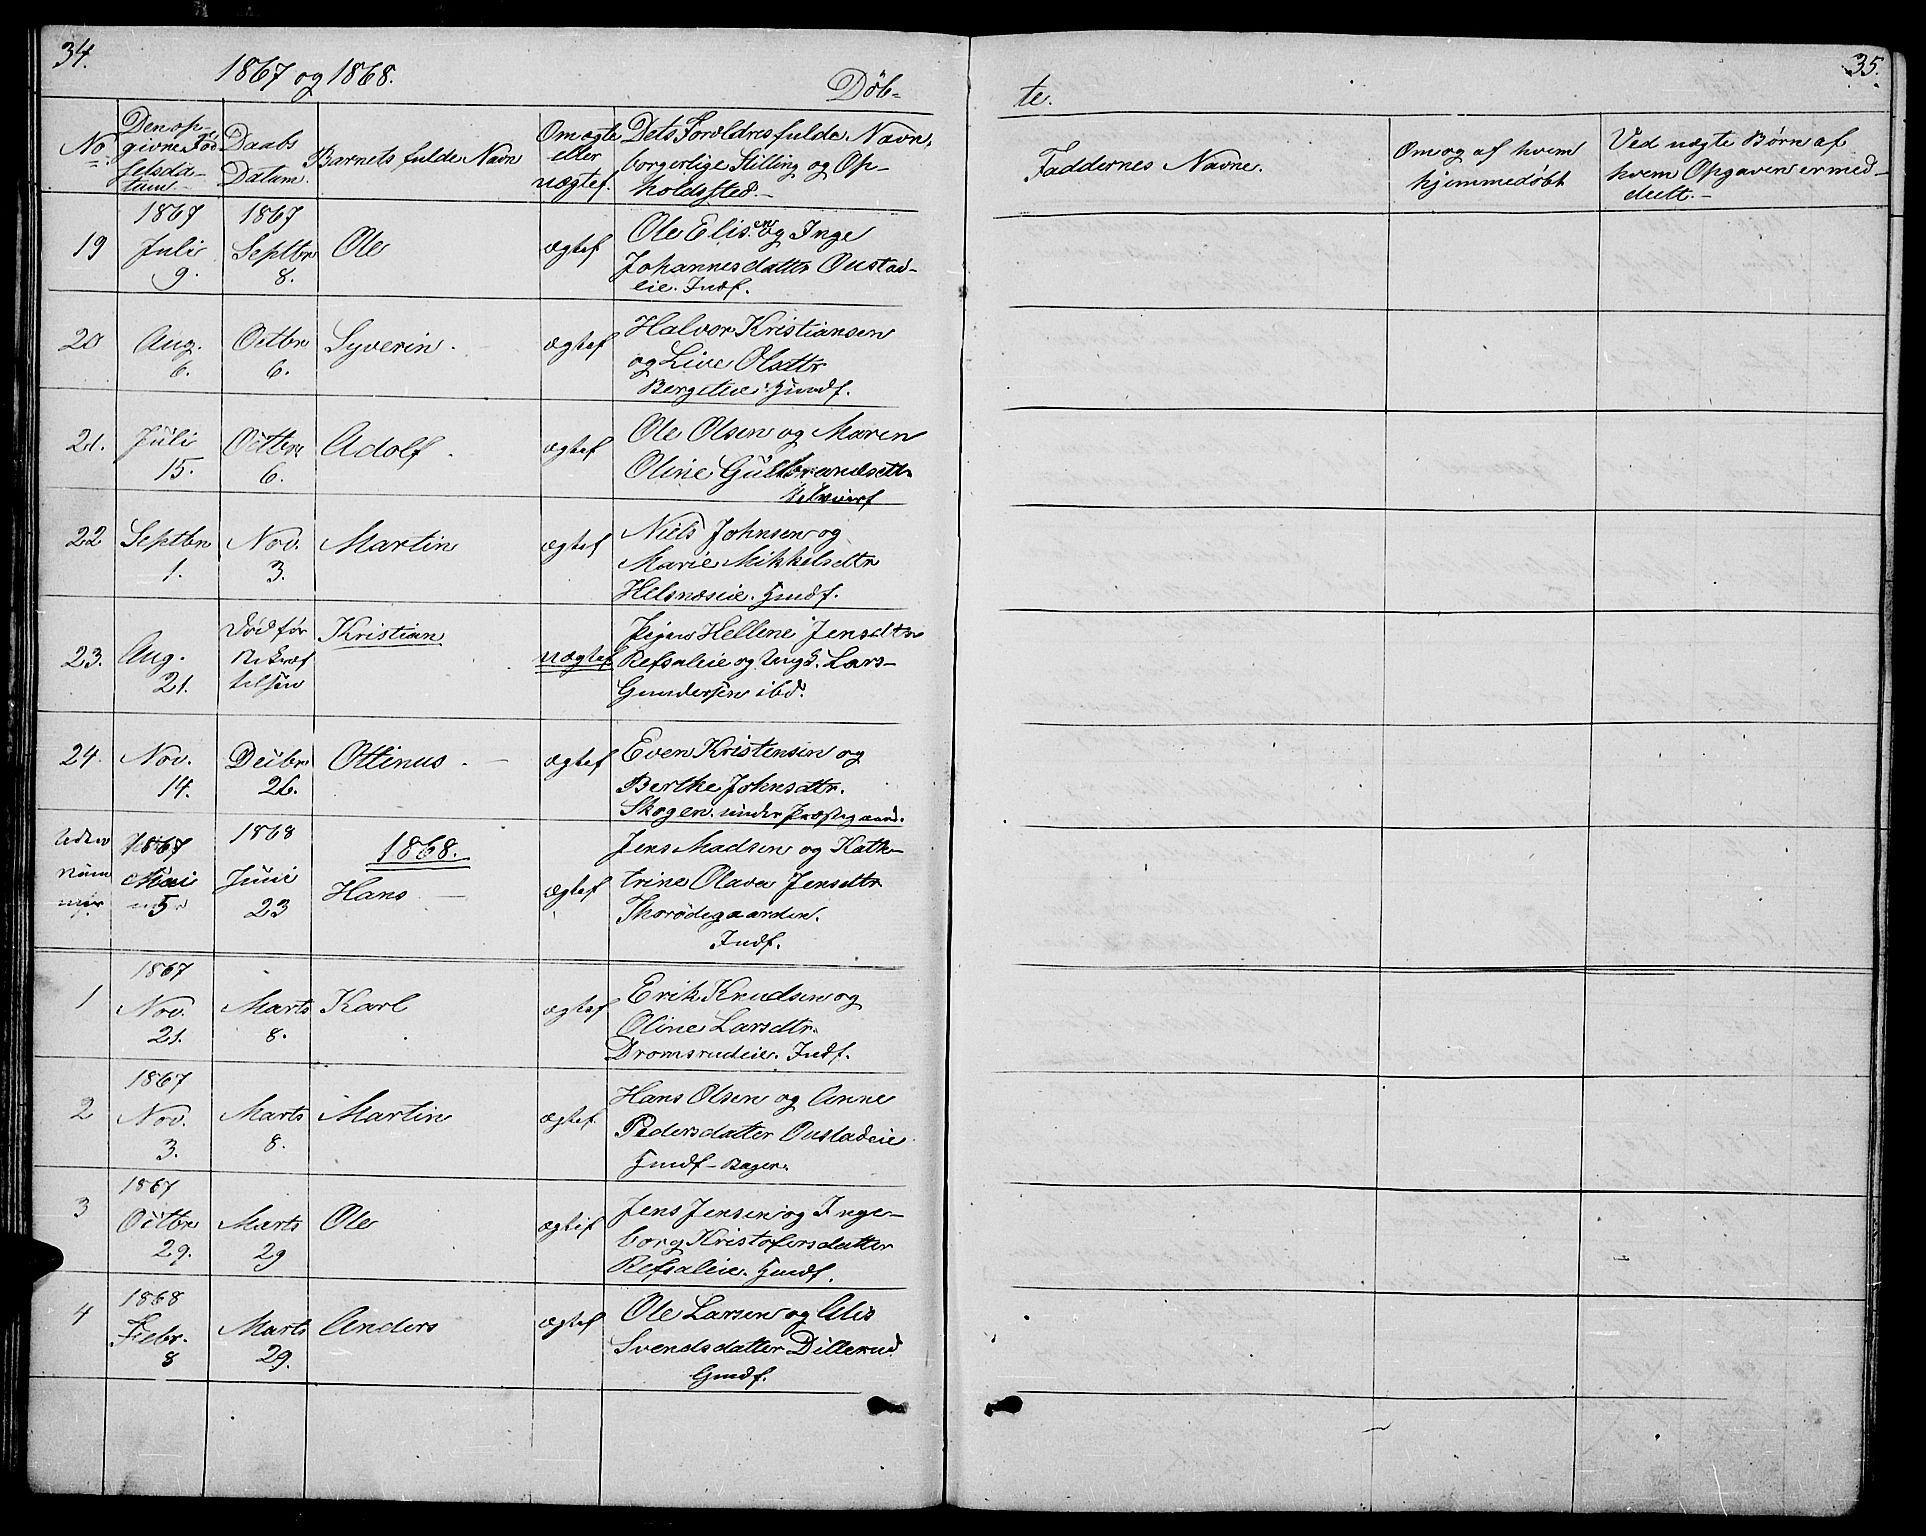 34.
1867 og 1868.
Døb-
No
Den op-
givne Fød
selsda-
tum
Daabs
Datum.
Barnets fulde Navn
Om ægte
eller
uægtef.
Dets Foreldres fulde Navn,
borgerlige Stilling og Op-
holdssted.
19
1867
Juli
9.
1867
Septbr
8.
Ole
ægtef
Ole Elis.en og Inge
Johannesdattr Oustad-
eie. Indf.
20
Aug.
6.
Octbr
6.
Syverin
ægtef
Halvor Kristiansen
og Live Olsdttr
21.
Juli
15.
Octbr
6.
Adolf
ægtef
Ole Olsen og Maren
Oline Gulbrandsdttr
22
Septbr
1.
Nov.
3.
Martin
ægtef
Niels Johnsen og
Marie Mikkelsdtr
Helsnæseie. Indf.
23.
Aug.
21.
Død før
Bekræf
telsen
Kristian
uægtef
Pigen Hellene Jensdtr
Refsaleie og Ungk. Lars
Gundersen ibd.
24.
Nov.
14.
Decbr
26.
Ottinus
ægtef
Even Kristensen og
Berthe Johnsdtr.
Skogen under Præstegaard.
Uden
Num
mer
1867
Mai
5
1868
Juni
23
1868.
Hans
ægtef
Jens Madsen og Kath-
trine Olava Jensdtr
Thorødegaarden.
Indf.
1
1867
Nov.
21.
Marts
8.
Karl
ægtef
Erik Knudsen og
Oline Larsdtr.
Dromsrudeie. Indf.
2
1867
Nov.
3.
Marts
8.
Martin
ægtef
Hans Olsen og Anne
Pedersdatter Oustadeie
Indf - Bager.
3
1867
Octbr
29.
Marts
29
Ole
ægtef
Jens Jensen og Inge-
borg Kristofersdatter
Refsaleie. Indf.
4
1868
Febr.
8
Marts
29.
Anders
ægtef
Ole Larsen og Alis
Svendsdatter Dillerud
Indf.
35.
te.
Faddernes Navne.
Om og af hvem
hjemmedøbt
Ved uægte Børn af
hvem Opgaven er med-
deelt.